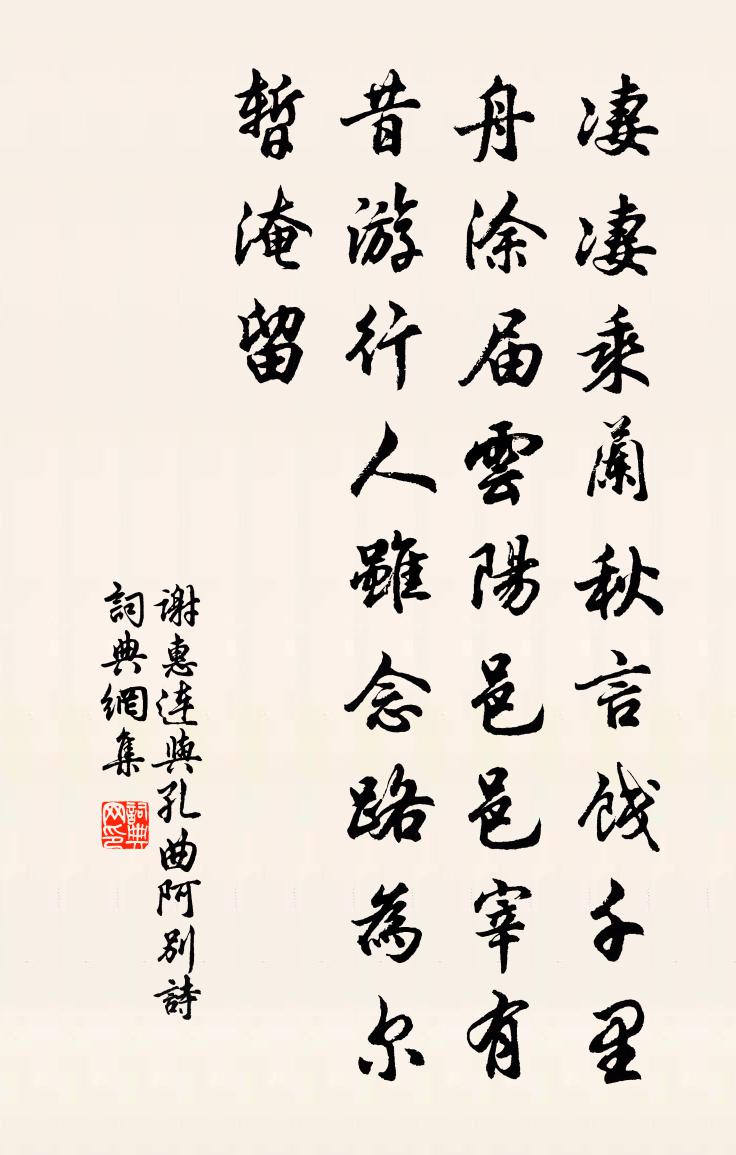 凄凄乘蘭秋言餞千里
舟涂届雲陽邑邑宰有
昔游行人雖念路為尔
暫淹留
謝惠連與孔曲阿別詩
詞典網集
詞典网印